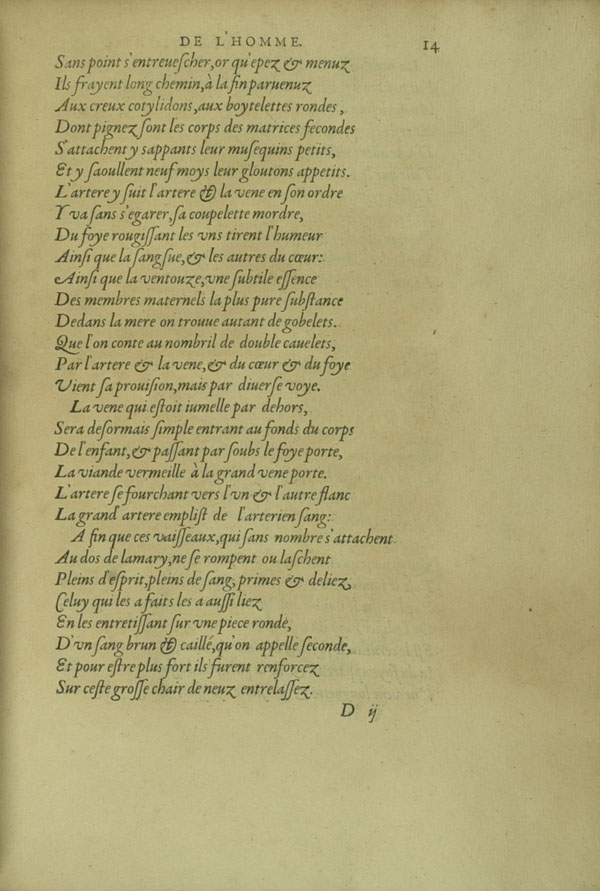 DE L'HOMME. 14
Sans point s'entreuescher, or qu'epez & menuz
Ils frayent long chemin, à la fin paruenuz
Aux creux cotylidons, aux boytelettes rondes,
Dont pignez sont les corps des matrices fecondes
S'attachent y sappants leur musequins petits,
Et y saoullent neuf moys leur gloutons appetits.
L'artere y suit l'artere & la vene en son ordre
Y va sans s'egarer, sa coupelette mordre,
Du foye rougissant les vns tirent l'humeur
Ainsi que la sangsue, & les autres du cœur:
Ainsi que la ventouze, vne subtile essence
Des membres maternels la plus pure substance
Dedans la mere on trouue autant de gobelets.
Que l'on conte au nombril de double cauelets,
Par l'artere & la vene, & du cœur & du foye
Vient sa prouision, mais par diuerse voye.
La vene qui estoit iumelle par dehors,
Sera desormais simple entrant au fonds du corps
De l'enfant, & passant par soubs le foye porte,
La viande vermeille à la grand vene porte.
L'artere se fourchant vers l'vn & l'autre flanc
La grand' artere emplist de l'arterien sang:
A fin que ces vaisseaux, qui sans nombre s'attachent
Au dos de lamary, ne se rompent ou laschent
Pleins d'esprit, pleins de sang, primes & deliez,
Celuy qui les a faits les a aussi liez
En les entretissant sur vne piece ronde,
D'vn sang brun & caillé, qu'on appelle seconde,
Et pour estre plus fort ils furent renforcez
Sur ceste grosse chair de neuz entrelassez.
D ij